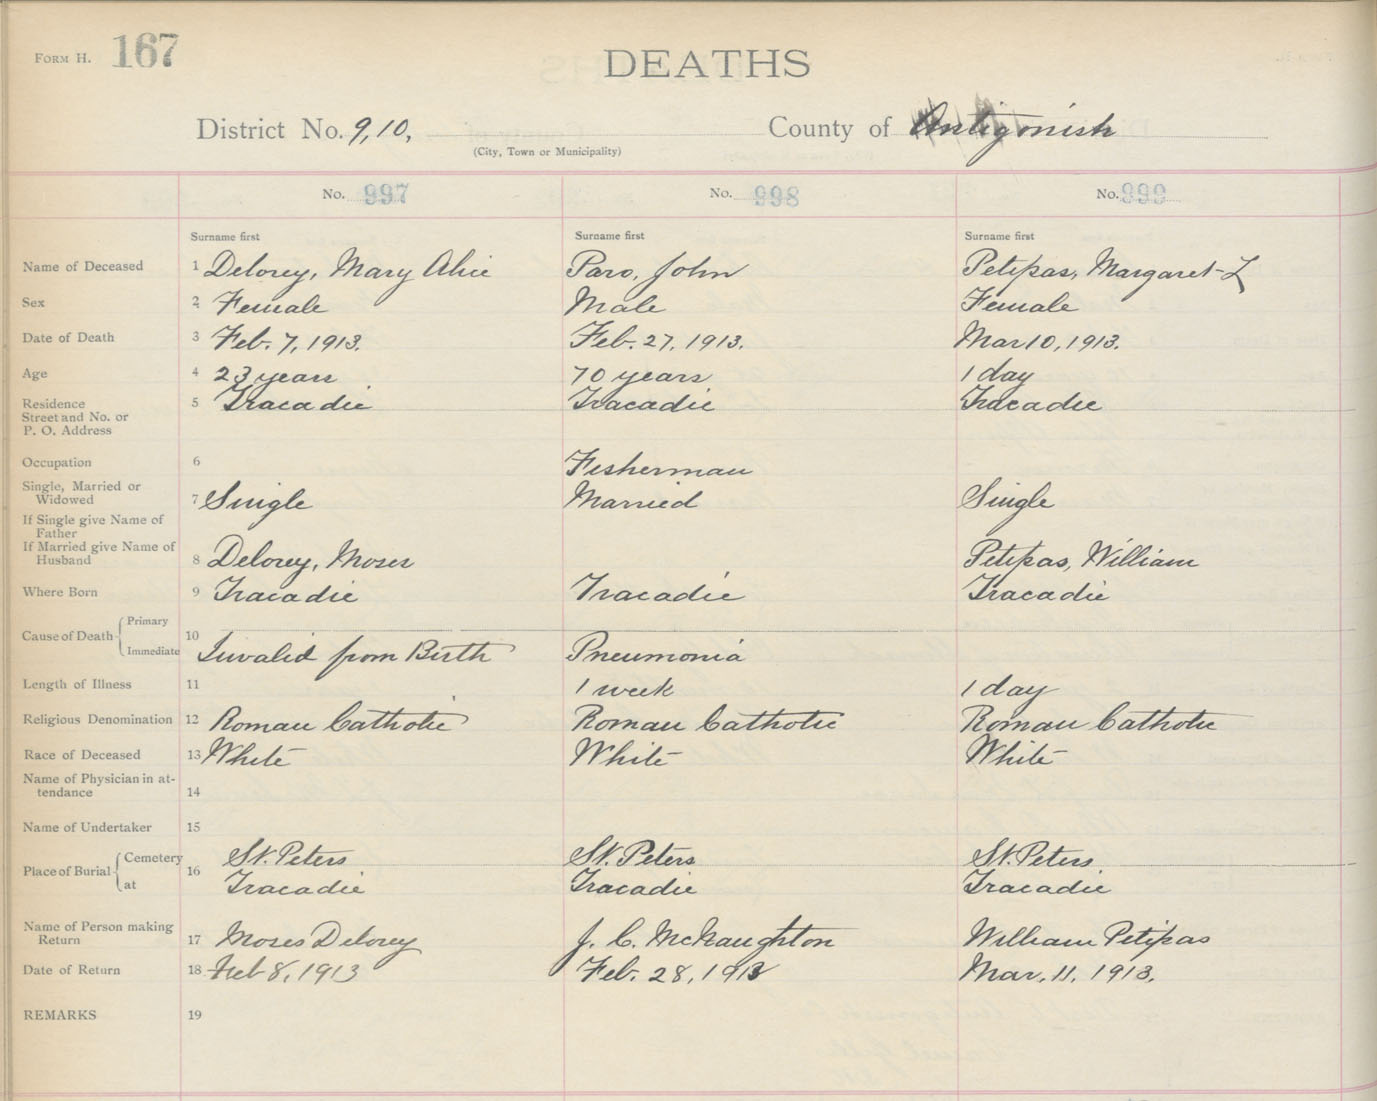 FORM H. 167
DEATHS
District No. 9,10, County of Antigonish
(City, Town or Municipality)
No. 997 No. 998 No. 999
Surname first Surname first Surname first
Name of Deceased 1 Delorey, Mary Alice Paro, John Petipas, Margaret-L
Sex 2 Female Male Female
Date of Death 3 Feb. 7, 1913. Feb. 27, 1913. Mar 10, 1913.
Age 4 23 years 70 years 1 day
Residence 5 Tracadie Tracadie Tracadie
Street and No. or
P. O. Address
Occupation 6 Fisherman
Single, Married or
Widowed 7 Single Married Single
If Single give Name of
Father
If Married give Name of
Husband 8 Delorey, Moses Petipas, William
Where Born 9 Tracadie Tracadie Tracadie
Primary
Cause of Death 10
Immediate Invalid from Birth Pneumonia
Length of Illness 11 1 week 1 day
Religious Denomination 12 Roman Catholic Roman Catholic Roman Catholic
Race of Deceased 13 White White White
Name of Physician in at-
tendance 14
Name of Undertaker 15
Cemetery St. Peters St. Peters St. Peters
Place of Burial 16
at Tracadie Tracadie Tracadie
Name of Person making
Return 17 Moses Delorey J. C. McNaughton William Petipas
Date of Return 18 Feb 8, 1913 Feb. 28, 1913 Mar. 11, 1913.
REMARKS 19